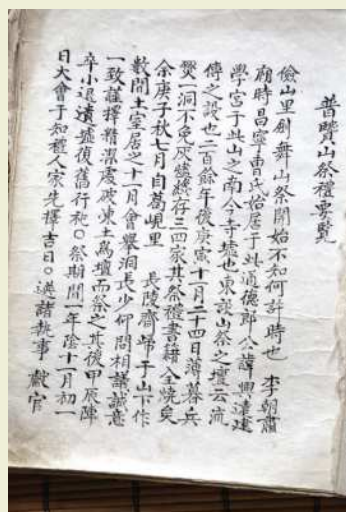 普賢山祭禮要覽
儉山里創舞山祭開始不知何許時也 李朝肅
廟時昌寧曹氏始居于此通德郎 公諱興遠建
學宮于此山之南今寺墟也東設山祭之壇云流
傳之設也二百餘年後庚寅十一月二十四日薄暮兵
燹一洞不免灰燼総存三四家其祭禮書籍全燒矣
余庚子秋七月自葛峴里 長陵齋歸于山下作
數間土室居之十一月會擧洞長少仰問相議誠意
一致謹擇精潔處破凍土爲壇而祭之其後甲辰陣
卒小退遺墟復舊行祀○祭期間一年陰十一月初一
日大會于知禮人家先擇吉日○選諸執事 獻官